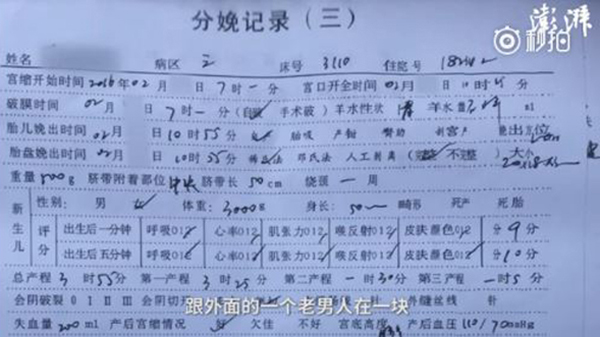 澎湃
秒拍
分娩记录（三）
姓名 病区 2 床号 3110 住院号
宫缩开始时间2016年02月 日7时一分 宫口开全时间02月 日10时 分
破膜时间02月 日7时一分（自破 手术破）羊水性状 清 羊水量 ml
胎儿娩出时间02月 日10时55分 胎吸 产钳 臀助 剖宫产 娩出方位
胎盘娩出时间02月 日10时55分 邓氏法 人工剥离（完整 不整）大小
重量500g 脐带附着部位 脐带长50cm 绕颈一周
新生儿 性别：男 体重：3000g 身长：50 畸形 死产 死胎
评分 出生后一分钟 呼吸012 心率012 肌张力012 喉反射012 皮肤颜色012 分9分
出生后五分钟 呼吸012 心率012 肌张力012 喉反射012 皮肤颜色012 分10分
总产程3时55分 第一产程3时25分 第二产程一时30分 第三产程一时5分
会阴破裂 0 I II III 会阴切开 外缝丝线 针
跟外面的一个老男人在一块
失血量200ml 产后宫缩情况 好 欠佳 不好 宫底高度 产后血压110/70mmHg